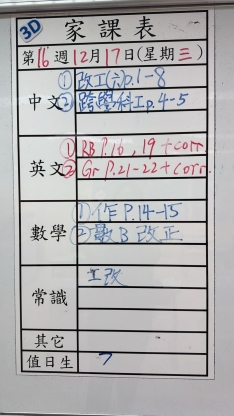 3D
家課表
第16週12月17日(星期三)
中文
①改工(六)p.1-8
②跨學科工p.4-5
英文
①RB P.16, 19 + corr
②Gr P.21-22 + corr.
數學
①作 P.14-15
②數B 改正
常識
工改
其它
值日生
7